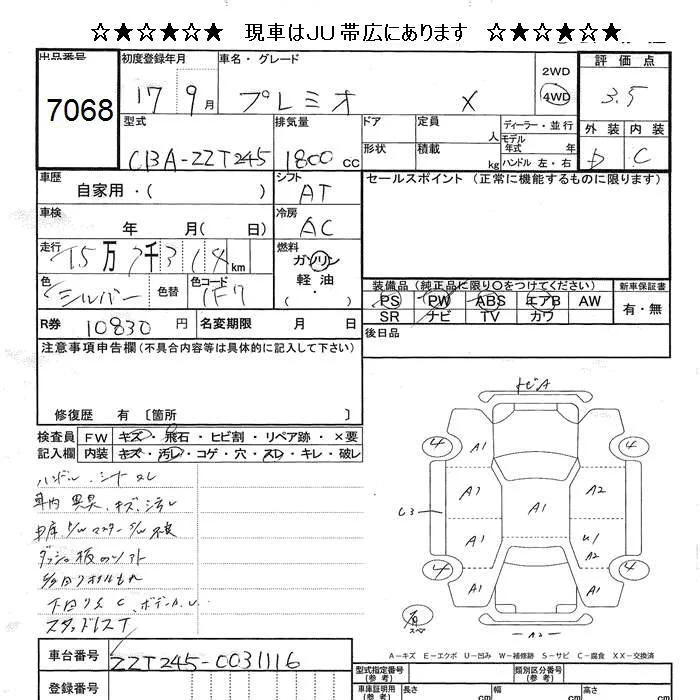 ☆★☆★☆★ 現車はJU帯広にあります ☆★☆★☆★
出品番号 7068
初度登録年月 17 9月
車名・グレード プレミオ X
2WD 4WD
評価点 3.5
外装 D 内装 C
型式 CBA-ZZT245
排気量 1800 cc
ドア 形状
定員 人
積載 kg
ディーラー・並行
モデル年式 年
ハンドル 左・右
車歴 自家用・( )
シフト AT
セールスポイント (正常に機能するものに限ります)
車検 年 月(日)
冷房 AC
走行 15万7千314km
燃料 ガソリン 軽油 ・
色 シルバー 色替 色コード 1F7
装備品 (純正品に限り〇をつけてください) 新車保証書
PS PW ABS エアB AW 有・無
SR ナビ TV カワ
R券 10830 円 名変期限 月 日
後日品
注意事項申告欄(不具合内容等は具体的に記入して下さい)
修復歴 有〔箇所 〕
検査員記入欄
FW キズ・飛石・ヒビ割・リペア跡・×要
内装 キズ・汚レ・コゲ・穴・スレ・キレ・破レ
ハンドル、シートスレ
車内 異臭、キズ、汚レ
スタッドレス
トビA
4 A1 4
A1 A1 A2
C3
A1 U1 A2
4 A1 A1 4
A2
A-キズ E-エクボ U-凹み W-補修跡 S-サビ C-腐食 XX-交換済
車台番号 ZZT245-0031116
登録番号
型式指定番号 類別区分番号
車庫証明用 長さ cm 幅 cm 高さ cm